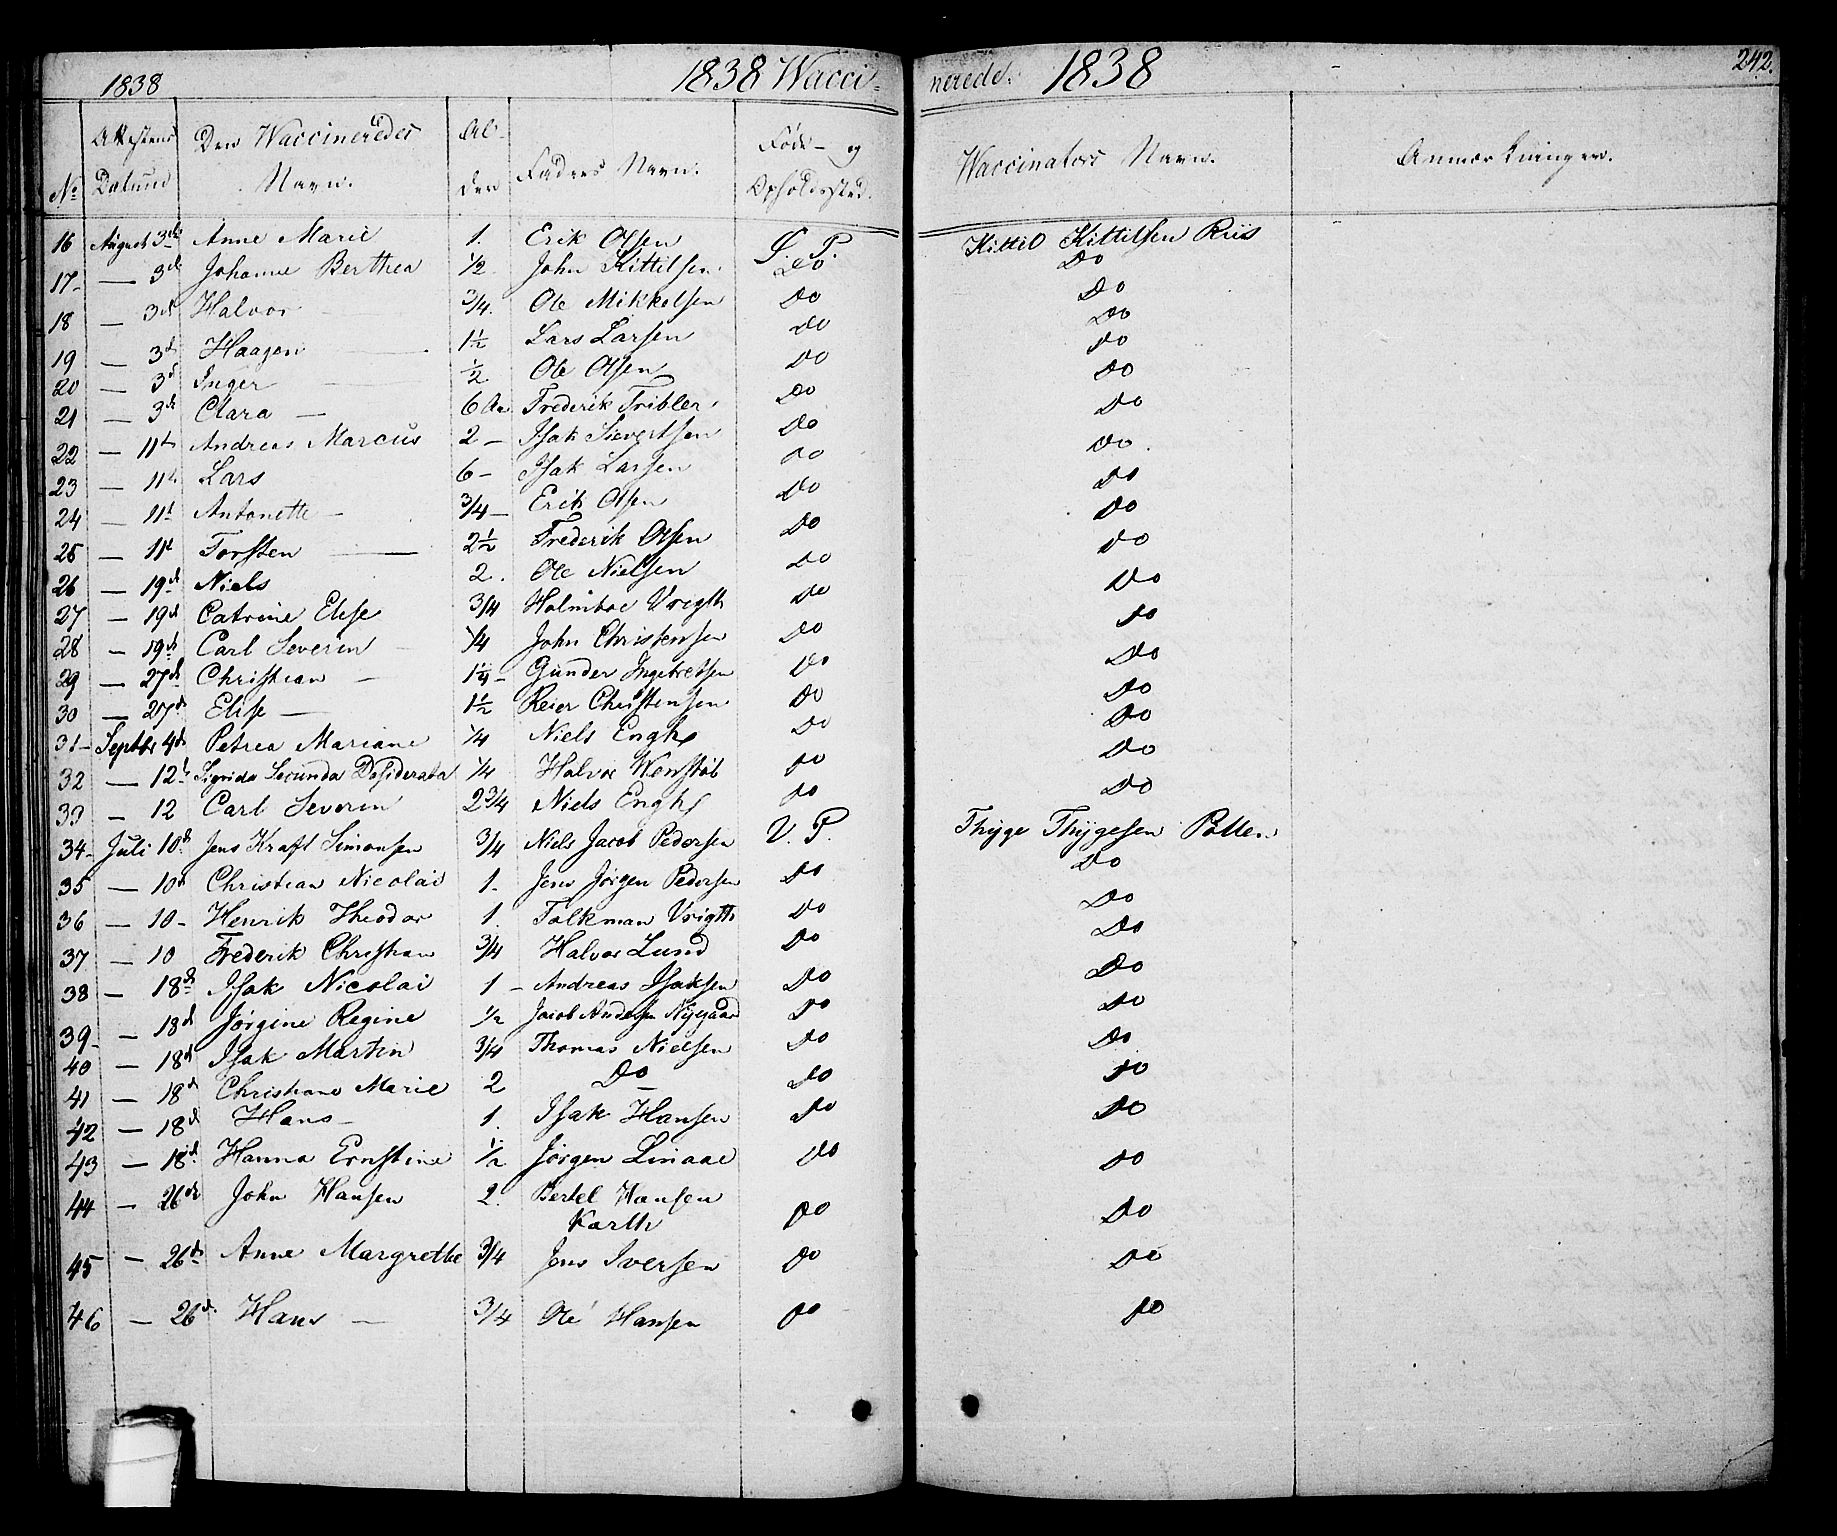 1838 1838 Wacci-nerede. 1838 242.
No Attestens Datum Den Waccineredes Navn. Al-der Faders Navn. Føde- og Opholdssted. Waccinators Navn. Anmærkninger.
16 August 3de Anne Marie 1. Erik Olsen Ø. P. Kittil Kittilsen Riis
17 — 3d Johanne Berthea 1/2 John Kittilsen. Do Do
18 — 3d Halvor 3/4. Ole Mikkelsen Do Do
19 — 3d Haagen 1½ Lars Larsen Do Do
20 — 3d Inger ½ Ole Olsen Do Do
21 — 3d Clara — 6 Aar Frederik Tribler Do Do
22 — 11t Andreas Marcus 2 — Isak Sievertsen Do Do
23 — 11t Lars 6 — Isak Larsen Do Do
24 — 11t Antonette — 3/4 — Erik Olsen Do Do
25 — 11t Torsten — 2½ Frederik Olsen Do Do
26 — 19d Niels 2. Ole Nielsen Do Do
27 — 19d Catrine Elise 3/4 Holmboe Vrigth Do Do
28 — 19d Carl Severin 1/4 John Christensen Do Do
29 — 27d Christian — 1¼ — Gunder Ingebretsen Do Do
30 — 27d Elise — 1½ Reier Christensen Do Do
31 — Septbr 4d Petrea Mariane 1/4 Niels Engh Do Do
32 — 12t Sigrida Secunda Desiderata 1/4 Halvor Wenstøb Do Do
33 — 12 Carl Severin 2 3/4 Niels Engh Do Do
34 — Juli 10d Jens Kraft Simonsen 3/4 Niels Jacob Pedersen V. P. Thyge Thygesen Potten
35 — 10d Christian Nicolai 1 - Jens Jørgen Pedersen Do Do
36 — 10 - Henrik Theodor 1. Folkman Vrigth Do Do
37 — 10 Frederik Christian 3/4 Halvor Lund Do Do
38 — 18d Isak Nicolai 1 - Andreas Isaksen Do Do
39 — 18d Jørgine Regine 1/2 Jacob Andersen Nygaard Do Do
40 — 18d Isak Martin 3/4 Thomas Nielsen Do Do
41 — 18d Christiane Marie 2 Do Do Do
42 — 18d Hans — 1. Isak Hansen Do Do
43 — 18d Hanna Ernstine 1/2 Jørgen Linaae Do Do
44 — 26d John Hansen 2. Bertel Hansen Karth Do Do
45 — 26d Anne Margrethe 3/4 Jens Iversen Do Do
46 — 26d. Hans — 3/4 Ole Hansen Do Do